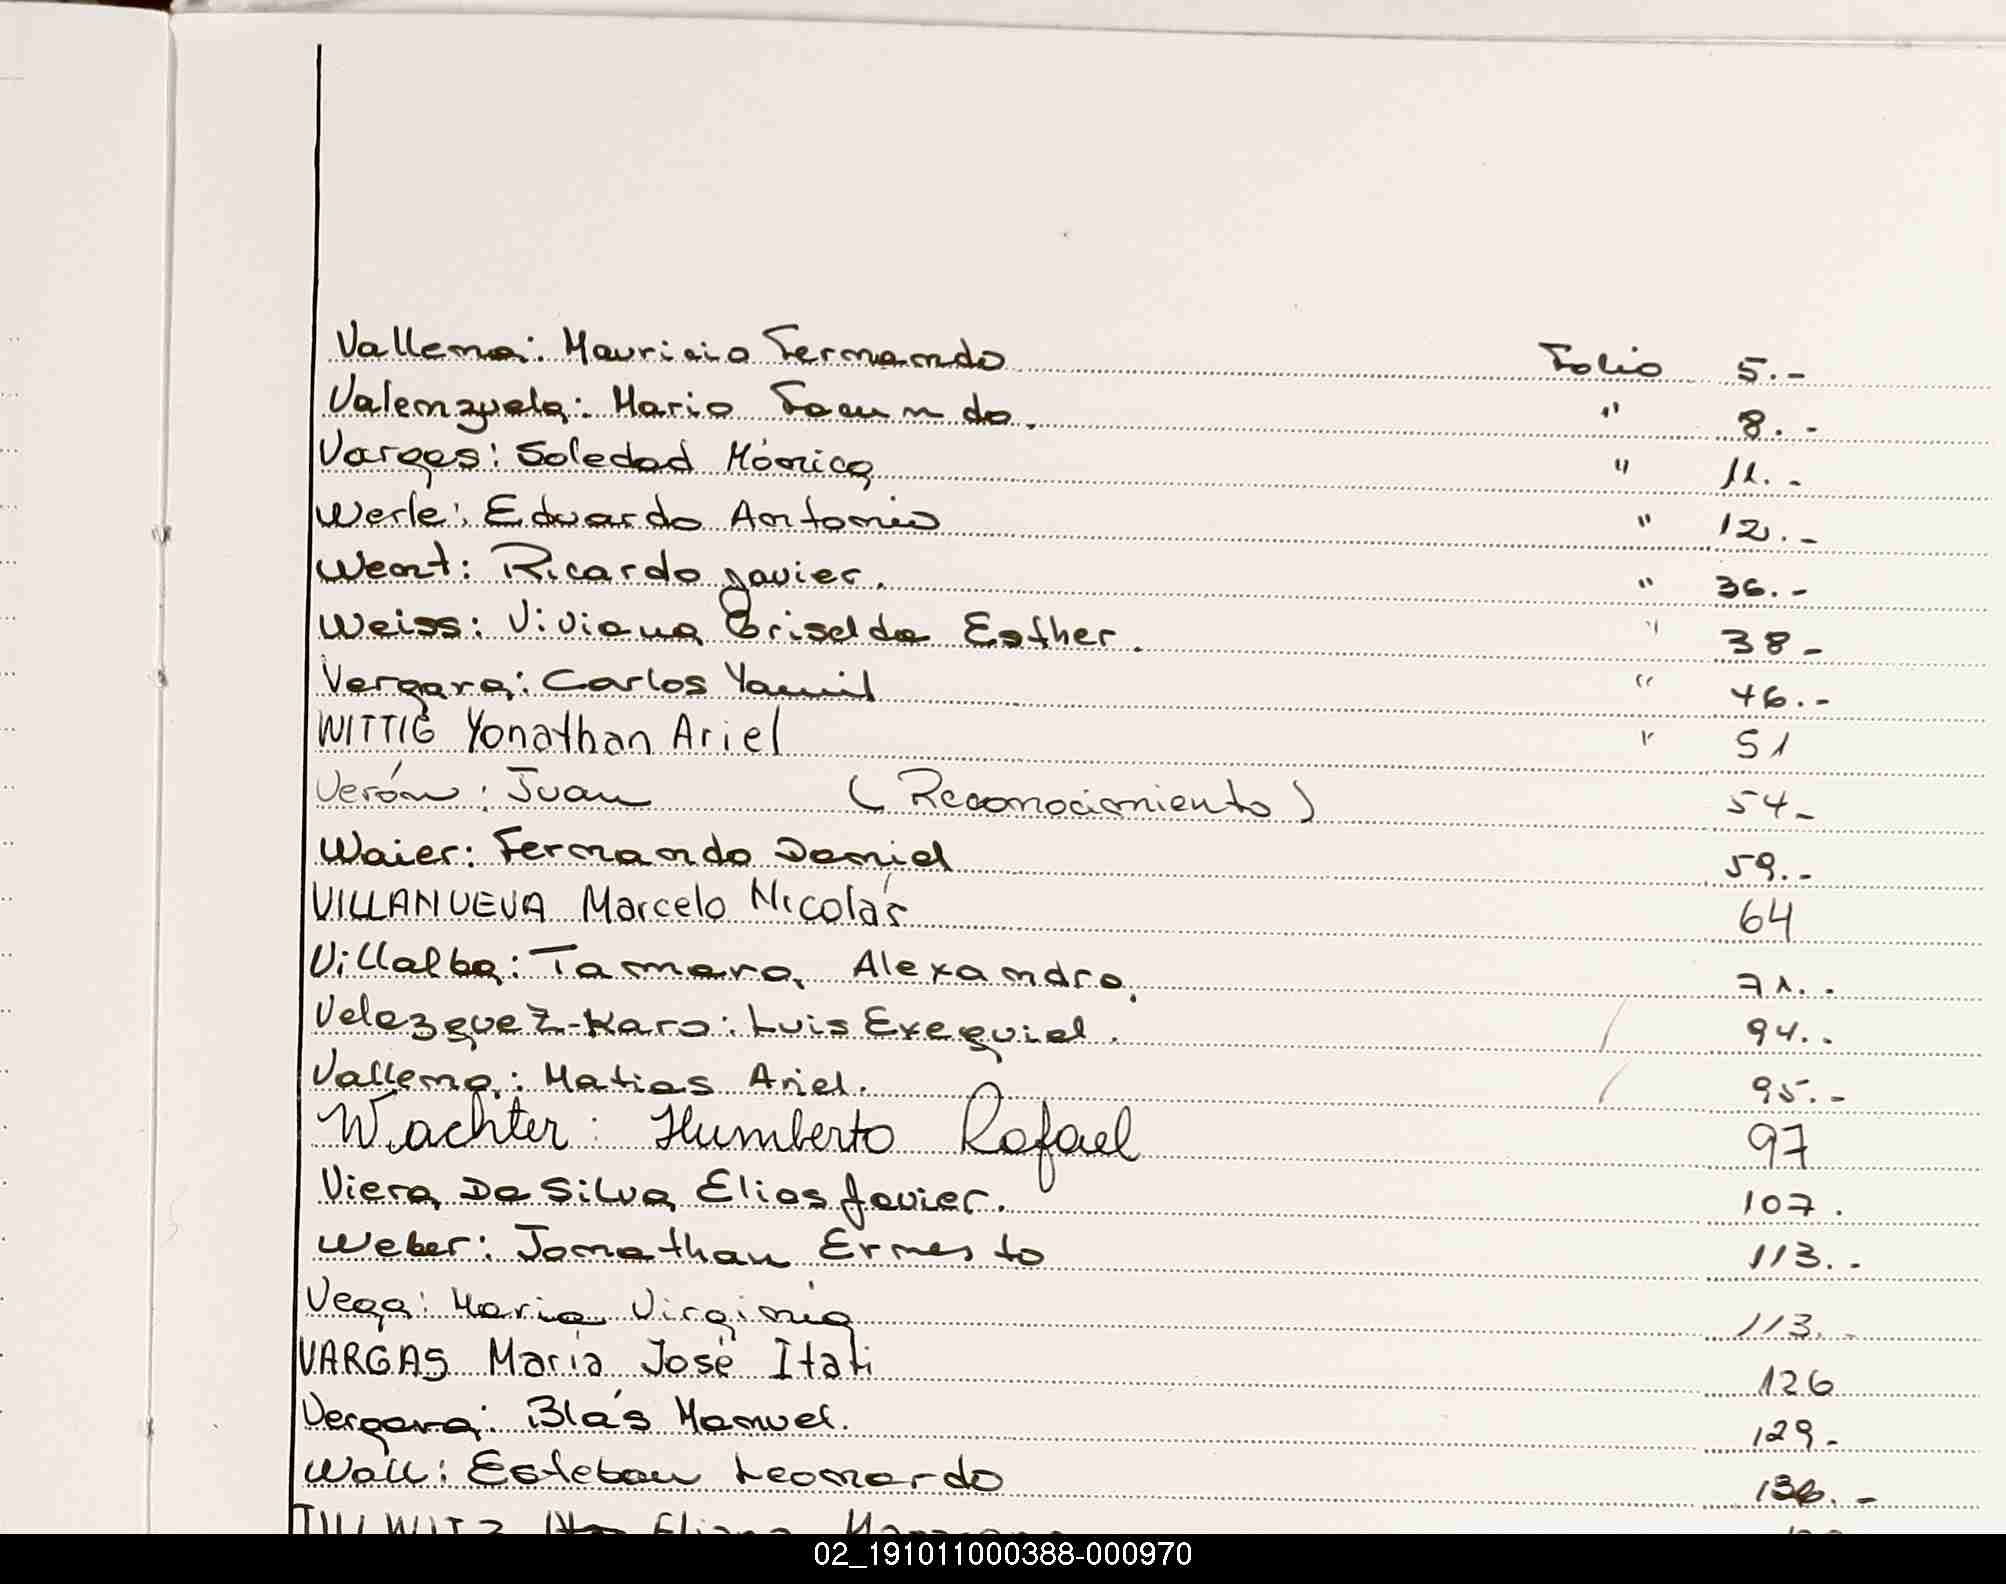 Vallena: Mauricio Fernando Folio 5.-
Valenzuela: Mario Facundo. " 8.-
Vargas: Soledad Mónica " 11.-
Werle: Eduardo Antonio " 12.-
Went: Ricardo Javier. " 36.-
Weiss: Viviana Griselda Esther. " 38-
Vergara: Carlos Yamil " 46.-
WITTIG Yonathan Ariel " 51
Verón: Juan (Reconocimiento) 54-
Waier: Fernando Daniel 59.-
VILLANUEVA Marcelo Nicolás 64
Villalba: Tamara Alexandra. 71.-
Velezquez-Karo: Luis Exequiel. 94.-
Vallena: Matias Ariel. 95.-
Wachter: Humberto Rafael 97
Viera Da Silva Elias Javier. 107.
Weber: Jonathan Ernesto 113.-
Vega: María Virginia 113.-
VARGAS María José Itati 126
Vergara: Blás Manuel. 129-
Wall: Esteban Leonardo 136.-
Eliana
02_191011000388-000970